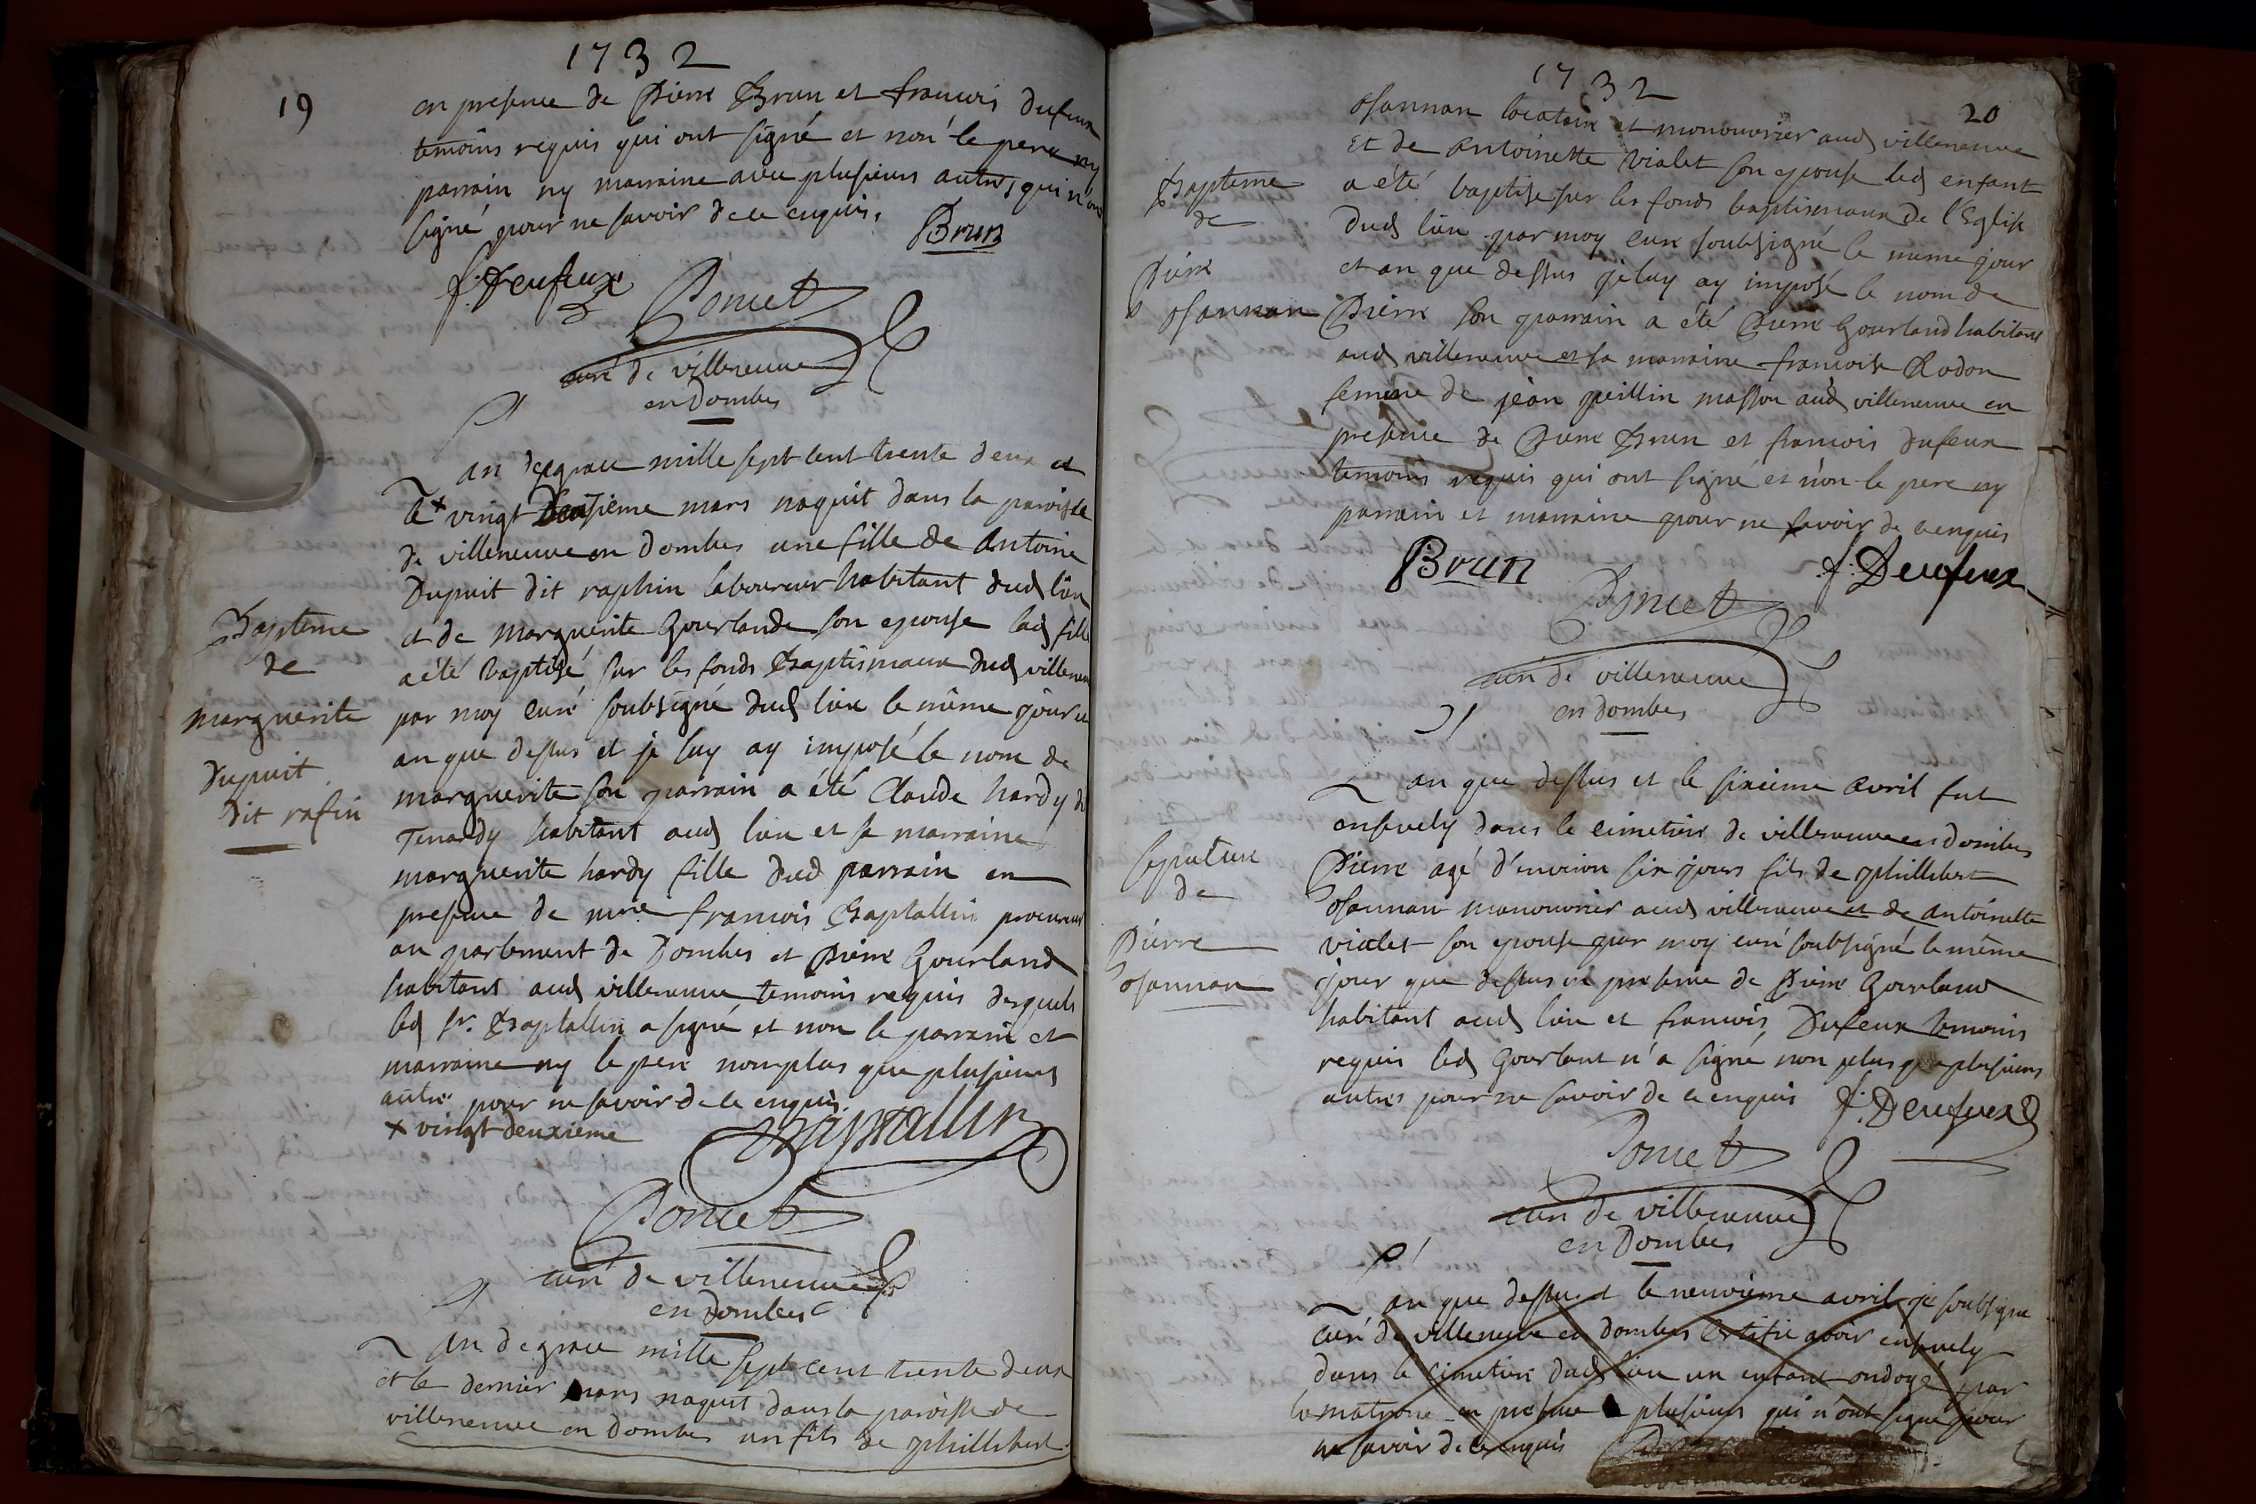 1732
19
en presence de Pierre Brun et francois Dufeux
temoins requis qui ont signé et non le pere ny
parrain ny marraine avec plusieurs autres qui n'ont
signé pour ne savoir de ce enquis.
Brun
f: Deufeux
Poncet
curé de villeneuve
en Dombes
L'an de grace mille sept cent trente deux et
le + vingt deuxième mars naquit dans la paroisse
de villeneuve en Dombes une fille de Antoine
Dupuit dit raphin laboureur habitant dud lieu
et de marguerite Gourlande son epouse lad fille
a été baptisé sur les fonds Baptismaux dud villeneuve
par moy curé soubsigné dud lieu le même jour et
an que dessus et je luy ay imposé le nom de
marguerite son parrain a été Claude hardy dit
Tenardy habitant aud lieu et sa marraine
marguerite hardy fille dud parrain en
presence de mre francois Baptallin procureur
au parlement de Dombes et Pierre Gourland
habitant aud villeneuve temoins requis desquels
led sr. Baptallin a signé et non le parrain et
marraine ny le pere nomplus que plusieurs
autres pour ne savoir de ce enquis.
+ vingt deuxieme
Baptallin
Baptême
de
marguerite
Dupuit
dit rafin
Poncet
curé de villeneuve
en Dombes
L'an de grace mille sept cent trente deux
et le dernier mars naquit dans la paroisse de
villeneuve en Dombes un fils de phillibert
1732
20
osannan locataire et manouvrier aud villeneuve
Et de Antoinette vialet son epouse led enfant
a été baptise sur les fonds baptismaux de l'Eglise
dud lieu par moy curé soubsigné le meme jour
et an que dessus je luy ay imposé le nom de
Pierre son parrain a été Pierre Gourland habitant
aud villeneuve et sa marraine francoise Rodon
femme de jean peillin masson aud villeneuve en
presence de Pierre Brun et francois Dufeux
temoins requis qui ont signé et non le pere ny
parrain et marraine pour ne savoir de ce enquis
Baptême
de
Pierre
osannan
Brun
f: Deufeux
Poncet
curé de villeneuve
en dombes
L'an que dessus et le sixieme avril fut
ensevely dans le cimetiere de villeneuve en dombes
Pierre agé d'environ six jours fils de phillibert
osannan manouvrier aud villeneuve et de Antoinette
vialet son epouse par moy curé soubsigné le même
jour que dessus en presence de Pierre Gourland
habitant aud lieu et francois Dufeux temoins
requis led Gourlant n'a signé non plus que plusieurs
autres pour ne savoir de ce enquis
f: Deufeux
sepulture
de
Pierre
osannan
Poncet
curé de villeneuve
en Dombes
L'an que dessus et le neuvième avril je soubsigné
curé de villeneuve en dombes Certifie avoir ensevely
dans le cimetiere dud lieu un enfant ondoyé par
la matrone en presence de plusieurs qui n'ont signé pour
ne savoir de ce enquis